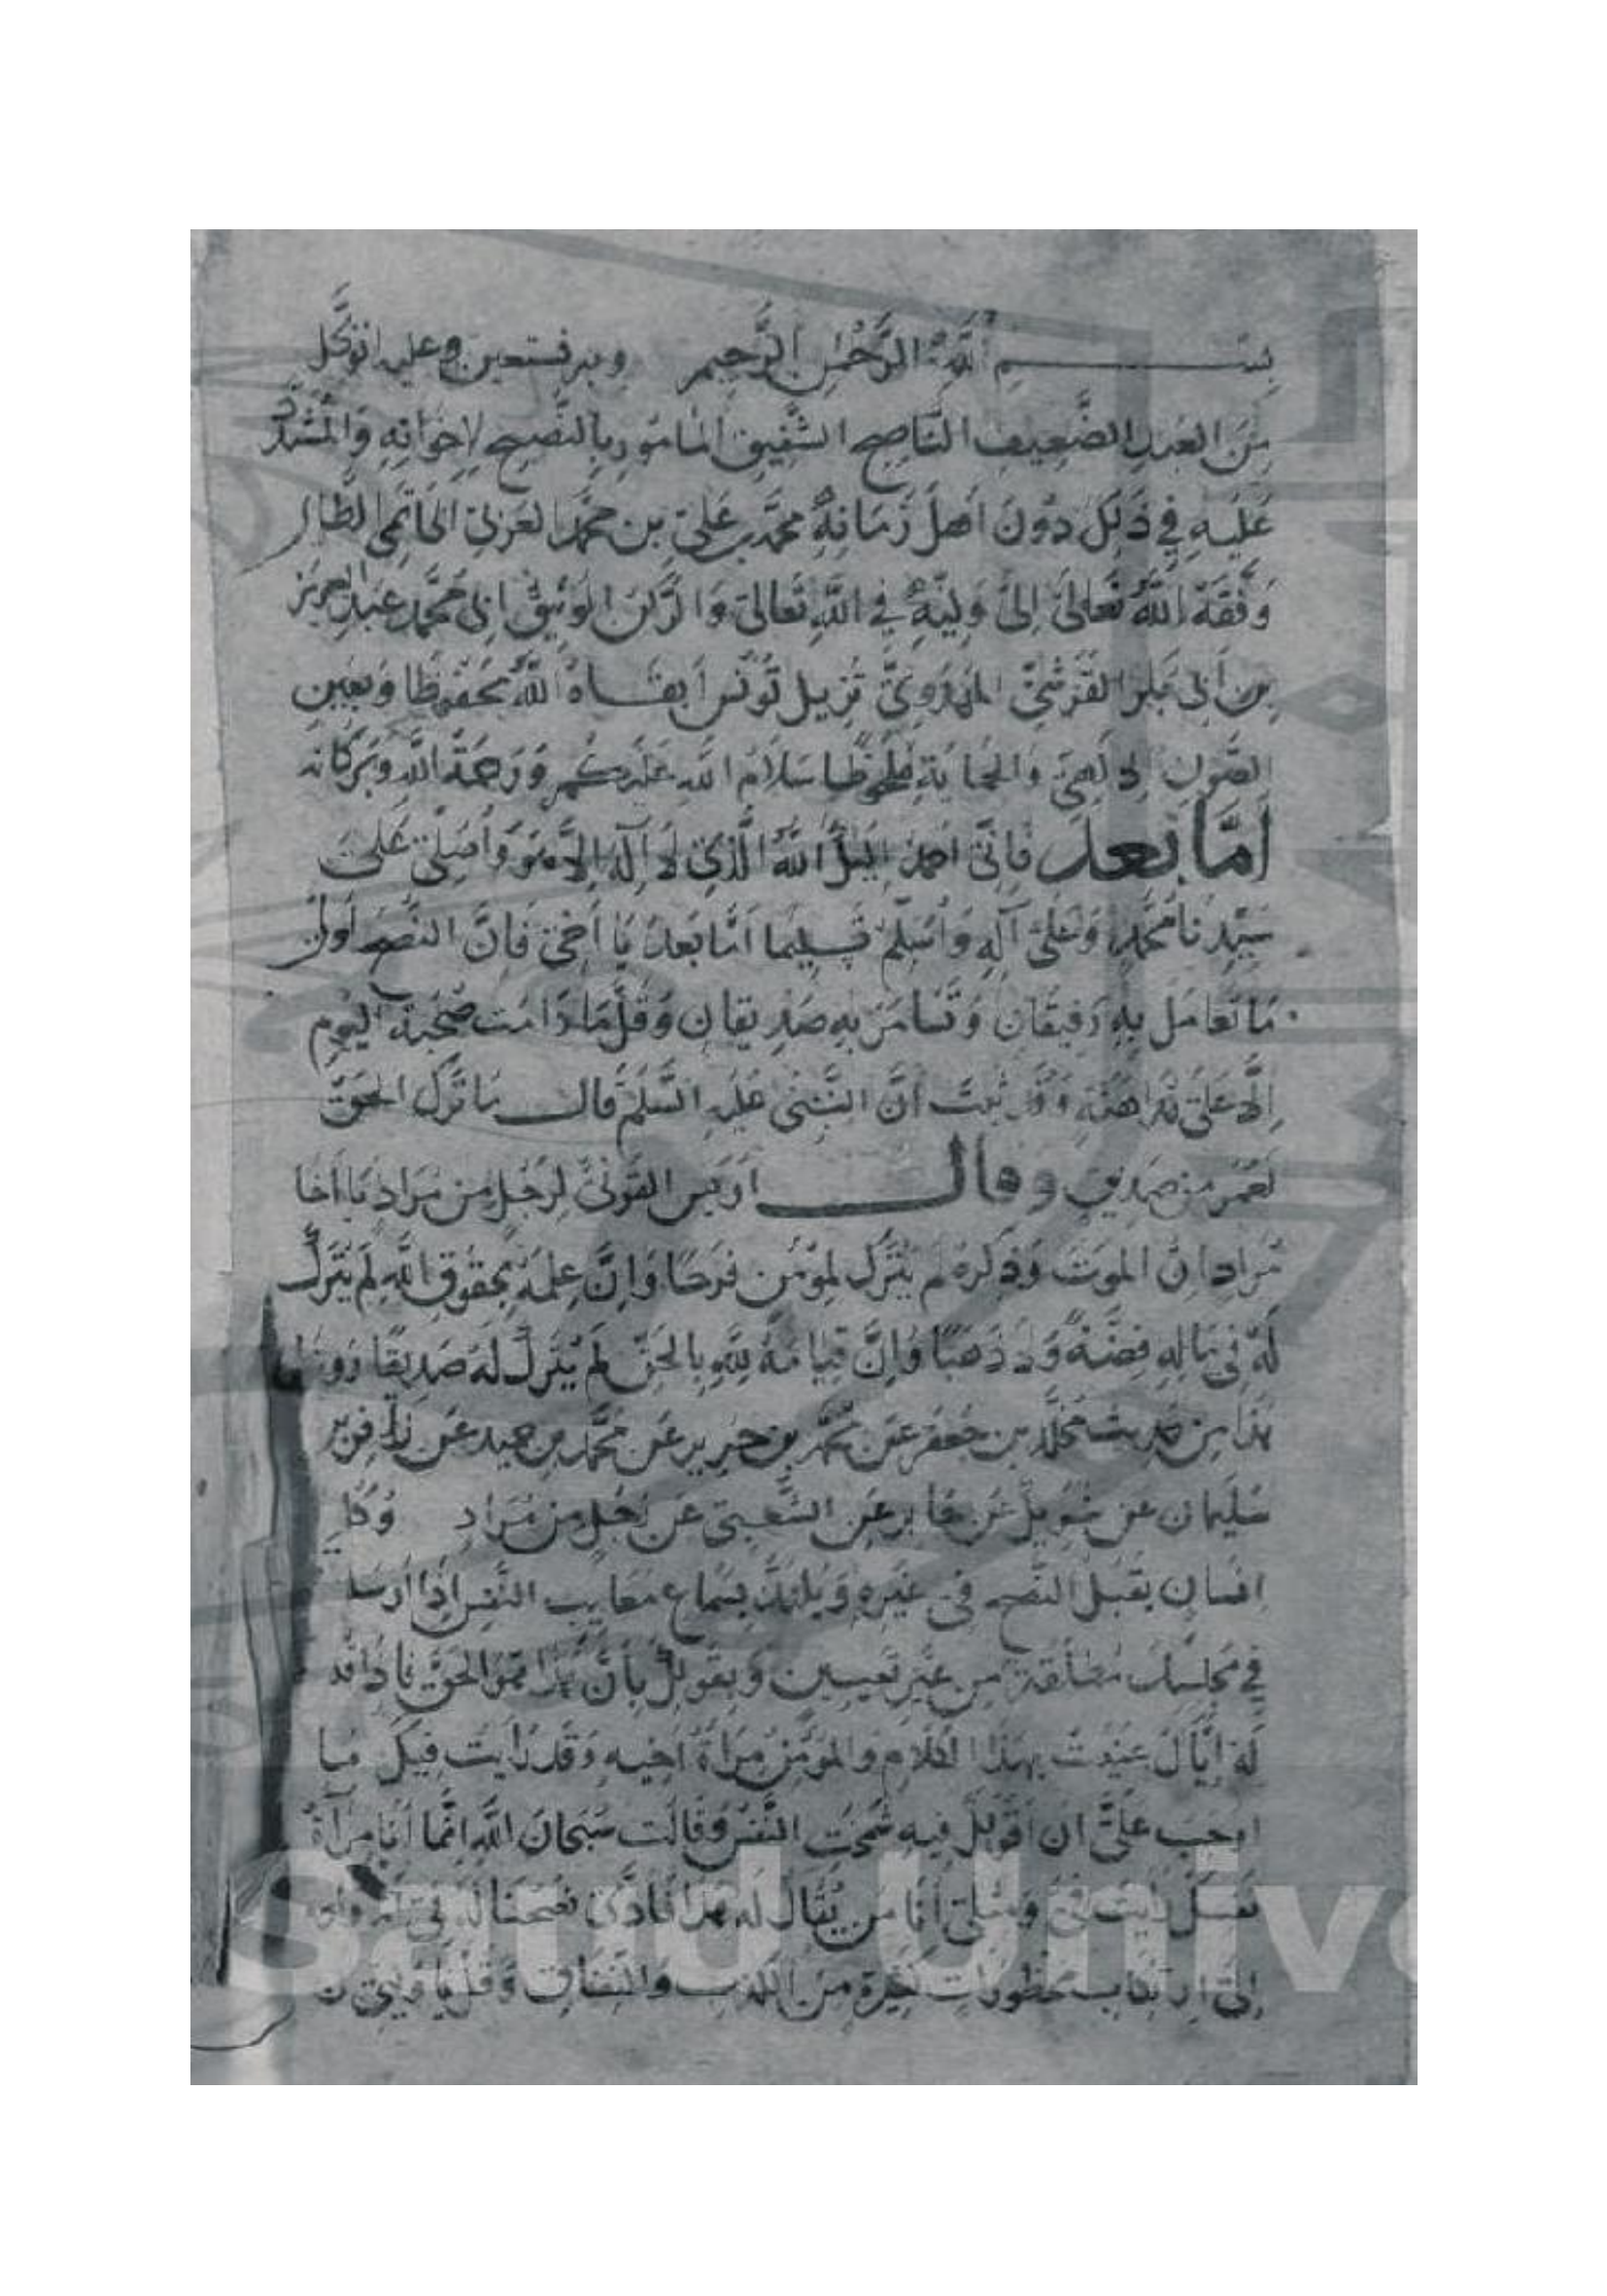 بسم الله الرحمن الرحيم وبه نستعين وعليه اتوكل
مِنَ العبد الضَّعِيفِ النَّاصِحِ الشَّفِيقِ المامور بِالنُّصحِ لِاِخوَانِهِ وَالمُشدَّدِ
عَلَيهِ فِي ذَلِكَ دُونَ اَهلِ زَمَانِهِ محمد بن عَلِيّ بن محمد العَرَبِيّ الحَاتِمي الطاي
وَفَّقَهُ اللَّهُ تَعَالَى اِلَى وَلِيِّهِ فِي اللَّهِ تَعَالَى وَالرُّكنِ الوَثِيقِ اَبِي مُحَمَّد عبد العزيز
بن اَبِي بَكر القُرَشِيّ المهدوِيّ نَزِيل تُونُس اَبقَاهُ اللَّهُ مَحفُوظًا وَبِعَينِ
الصَّونِ الالهي والحماية مَلحُوظًا سَلَامُ الله عَلَيكُم وَرَحمَةُ اللَّه وَبَرَكَاته
اَمَّا بعد فَاِنِّي احمد اليك اللَّهَ الَّذِي لا اِلَهَ اِلا هُوَ وَاُصَلِّي عَلَى
سَيِّدِنَا مُحَمَّدٍ وَعَلَى آلِهِ وَاُسَلِّمُ تسليما اَمَّا بَعدُ يَا اَخِي فَاِنَّ النُّصحَ اَولَى
مَا تَعَامَلَ بِهِ رَفِيقَانِ وَتَسَامَرَ بِهِ صَدِيقَانِ وَقَلَّمَا دَامَت صُحبَة اليَومِ
اِلا عَلَى مُدَاهَنَة وَقَد ثبت اَنَّ النَّبِيّ عَلَيهِ السَّلَم قال مَا تَرَكَ الحَقُّ
لِعُمَرَ مِن صَدِيقٍ وقال اُوَيس القَرَنِيّ لِرَجُلٍ مِن مُرَاد يَا اَخَا
مُرَادٍ اِنَّ المَوتَ وَذِكرَهُ لم يَترُك لِمُؤمِنٍ فَرَحًا وَاِنَّ عِلمَهُ بِحُقُوقِ اللَّهِ لَم يَترُك
لَهُ فِي مَالِهِ فِضَّةً وَلا ذَهَبًا وَاِنَّ قِيَامَهُ لِلَّهِ بِالحَقِّ لَم يَترُك لَهُ صَدِيقًا رَوينَا
هَذَا مِن حَدِيث مَخلَد بن جَعفَر عَن مُحَمَّد بن جَرِير عَن مُحَمَّد بن حميد عَن زافر بن
سُلَيمان عَن شَرِيك عَن جَابِر عَنِ الشَّعبِيّ عَن رَجُلٍ مِن مُرَادٍ وَكل
انسان يَقبَل النُّصح فِي غَيرِهِ وَيَلتَذُّ بِسَمَاعِ مَعَايِب النَّفس اِذَا ارسلت
فِي مَجلِسك مُطلَقَة مِن غَيرِ تَعيِين وَيَقُول لك بِاَنَّ هَذَا هُوَ الحَقّ فَاِذَا قلت
لَهُ اِيَّاكَ عَنَيتُ بِهَذَا الكَلَامِ وَالمؤمِن مِرآةُ اَخِيهِ وَقَد رَاَيت فِيكَ مَا
اوجب عَلَيَّ ان اَقُولَ لَكَ فِيهِ شَمَخَتِ النَّفس وَقَالَت سُبحَانَ اللَّهِ اِنَّمَا اَنَا مِرآةُ
وَمثلي اَنَا مَن يُقَال لَهُ هَذَا
اِلَى ارتكاب مَحظُورَات كَثِيرَة مِنَ الكذب وَالنِّفَاق